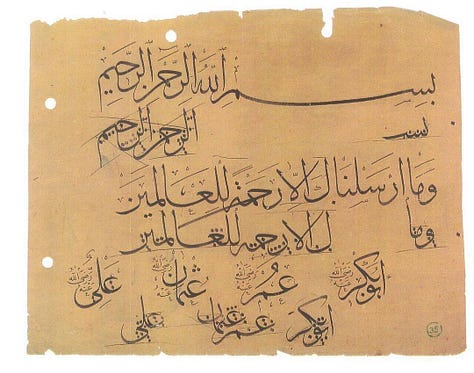 بسم الله الرحمن الرحيم
بسم الرحمن الرحيم
وما ارسلناك الا رحمة للعالمين
وما ك الا رحمة للعالمين
ابوبكر رضي الله عنه عمر رضي الله عنه عثمان رضي الله عنه علي رضي الله عنه
ابوبكر عمر عثمان علي
35